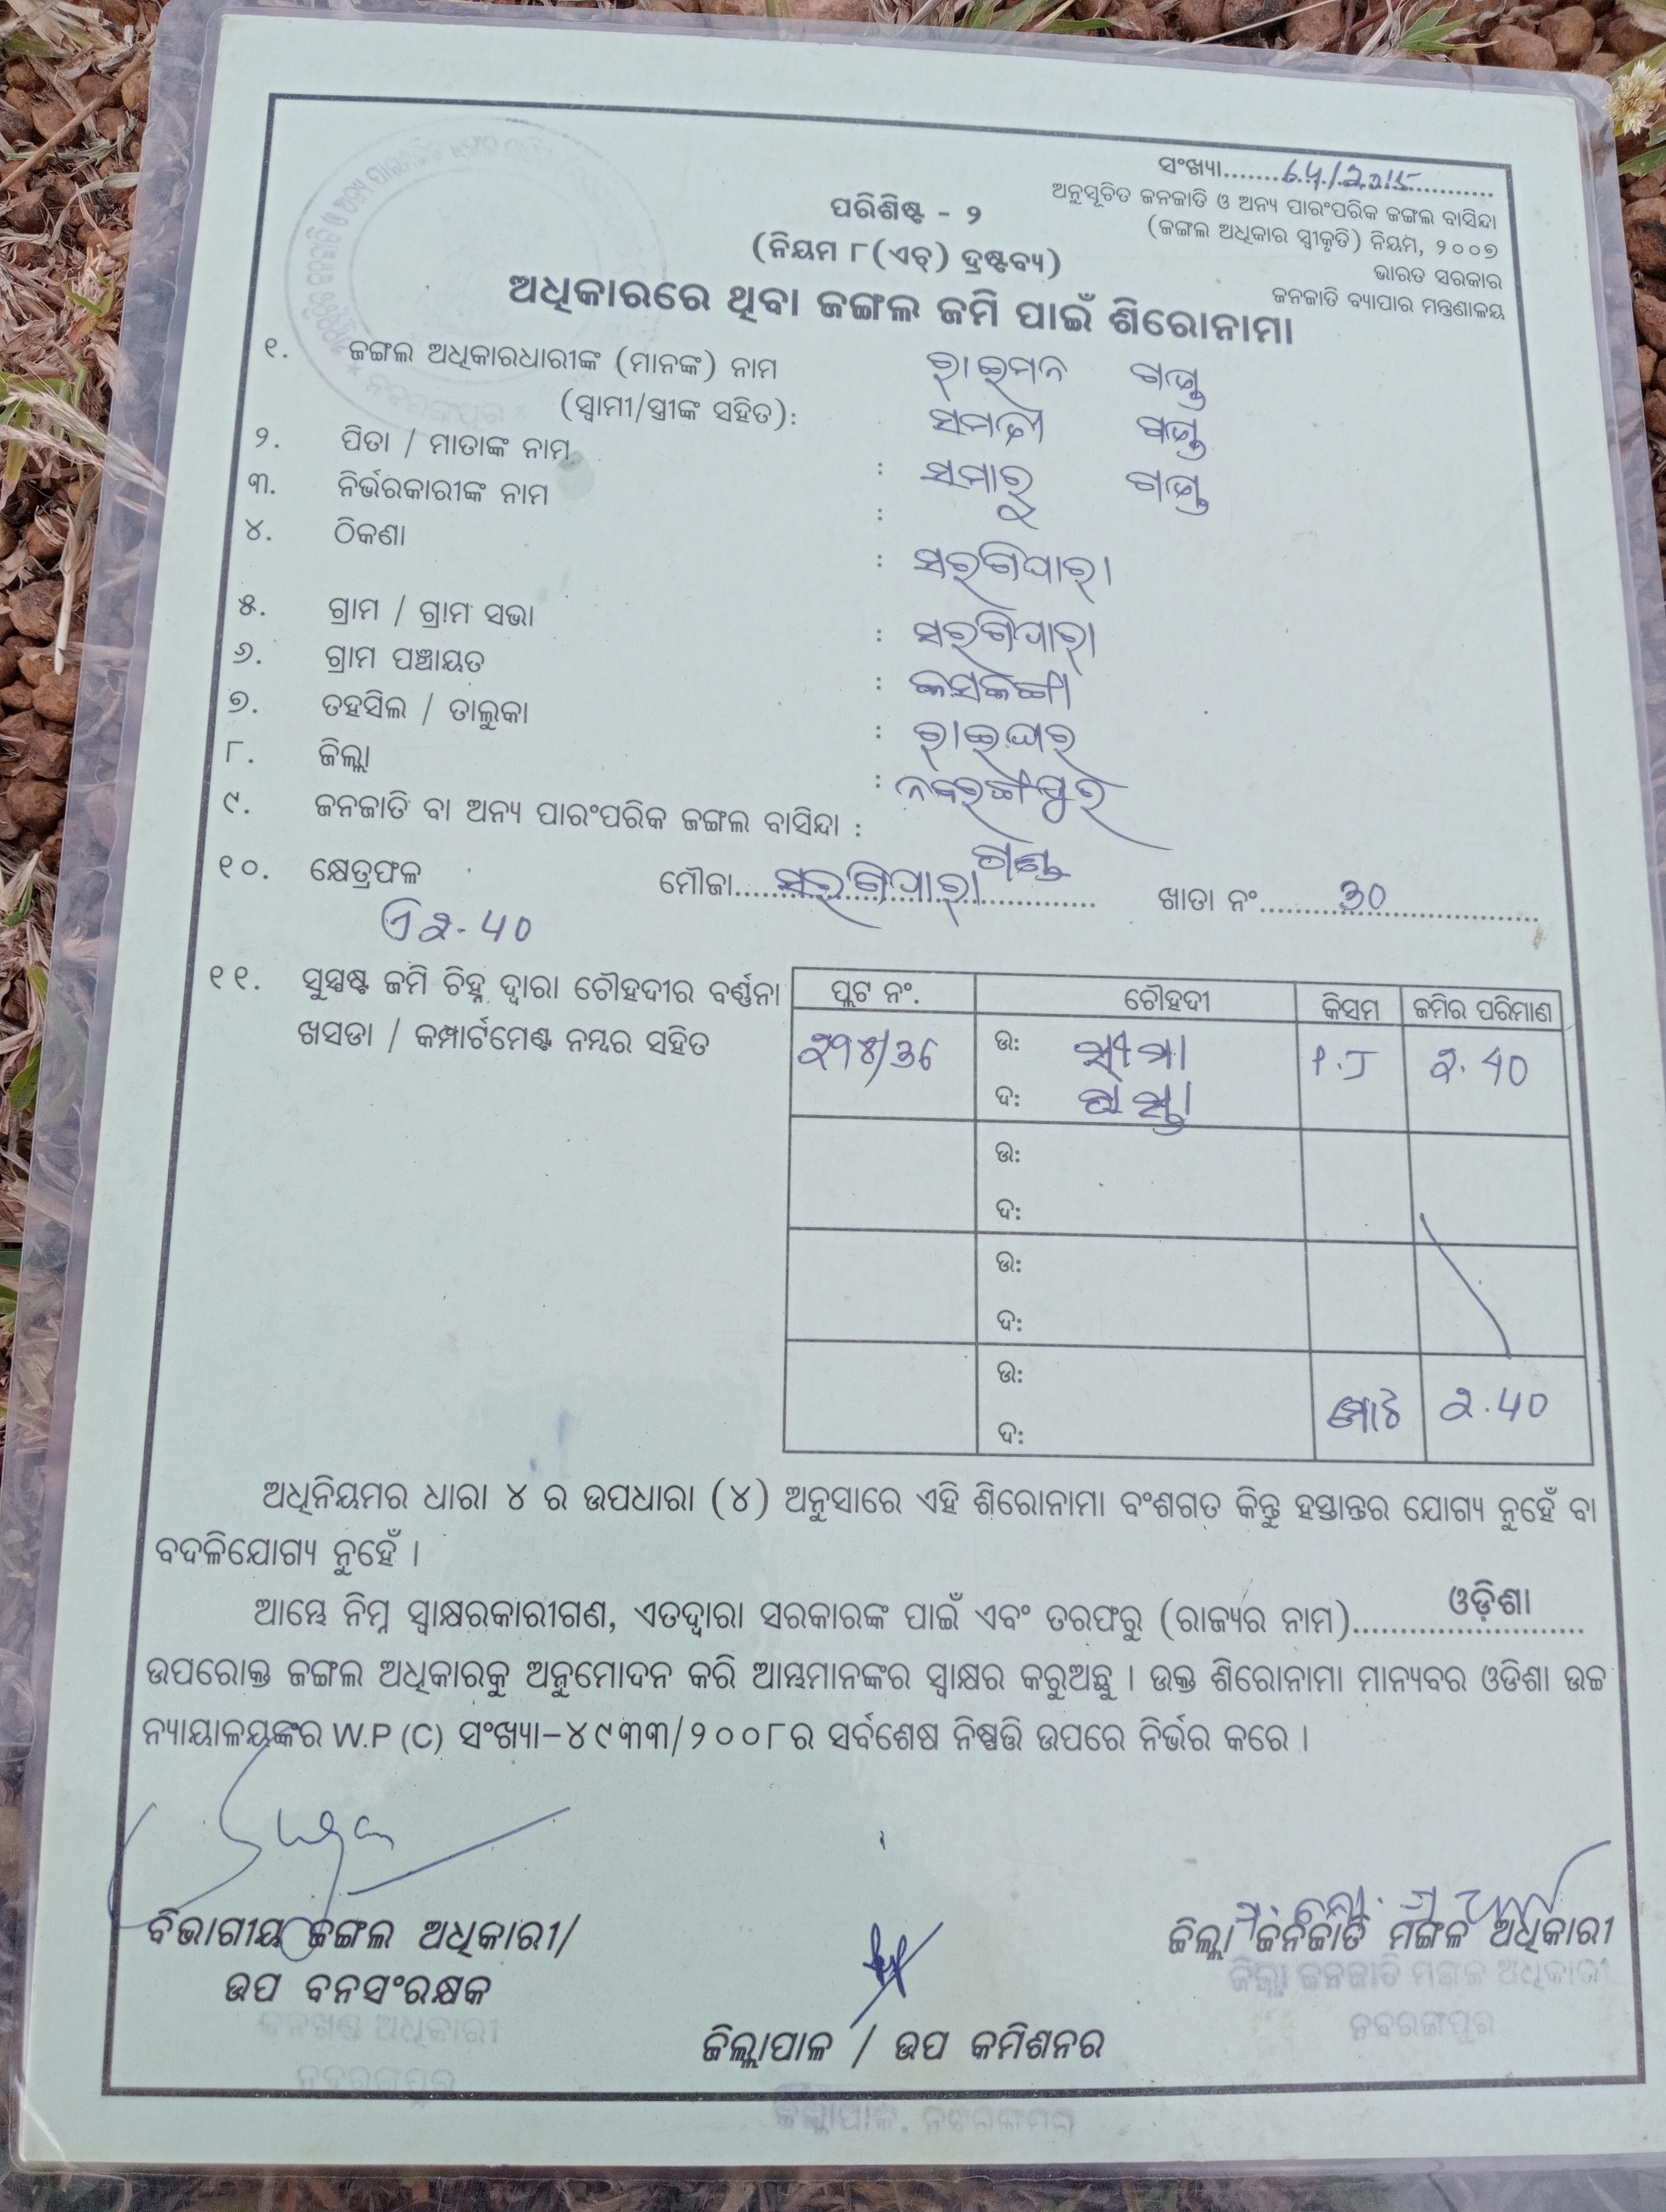 ସଂଖ୍ୟା.......64/2015.......
ଅନୁସୂଚିତ ଜନଜାତି ଓ ଅନ୍ୟ ପାରଂପରିକ ଜଙ୍ଗଲ ବାସିନ୍ଦା
(ଜଙ୍ଗଲ ଅଧିକାର ସ୍ୱୀକୃତି) ନିୟମ, ୨୦୦୭
ଭାରତ ସରକାର
ଜନଜାତି ବ୍ୟାପାର ମନ୍ତ୍ରଣାଳୟ
ପରିଶିଷ୍ଟ - ୨
(ନିୟମ ୮(ଏଚ୍) ଦ୍ରଷ୍ଟବ୍ୟ)
ଅଧିକାରରେ ଥିବା ଜଙ୍ଗଲ ଜମି ପାଇଁ ଶିରୋନାମା
୧. ଜଙ୍ଗଲ ଅଧିକାରଧାରୀଙ୍କ (ମାନଙ୍କ) ନାମ ରାଇମନ ଗଣ୍ଡ
(ସ୍ୱାମୀ/ସ୍ତ୍ରୀଙ୍କ ସହିତ): ସମତୀ ଗଣ୍ଡ
୨. ପିତା / ମାତାଙ୍କ ନାମ : ସମାରୁ ଗଣ୍ଡ
୩. ନିର୍ଭରକାରୀଙ୍କ ନାମ :
୪. ଠିକଣା : ସରଗିପାରା
୫. ଗ୍ରାମ / ଗ୍ରାମ ସଭା : ସରଗିପାରା
୬. ଗ୍ରାମ ପଞ୍ଚାୟତ :
୭. ତହସିଲ / ତାଲୁକା : ରାଇଘର
୮. ଜିଲ୍ଲା : ନବରଙ୍ଗପୁର
୯. ଜନଜାତି ବା ଅନ୍ୟ ପାରଂପରିକ ଜଙ୍ଗଲ ବାସିନ୍ଦା : ଗଣ୍ଡ
୧୦. କ୍ଷେତ୍ରଫଳ ମୌଜା.......ସରଗିପାରା....... ଖାତା ନଂ.......30.......
ଏ 2.40
୧୧. ସୁସ୍ପଷ୍ଟ ଜମି ଚିହ୍ନ ଦ୍ୱାରା ଚୌହଦୀର ବର୍ଣ୍ଣନା
ଖସଡା / କମ୍ପାର୍ଟମେଣ୍ଟ ନମ୍ବର ସହିତ
ପ୍ଲଟ ନଂ. ଚୌହଦୀ କିସମ ଜମିର ପରିମାଣ
ଉ: ସୀମା 2.40
ଦ: ରାସ୍ତା
ଉ:
ଦ:
ଉ:
ଦ:
ଉ: ମୋଟ 2.40
ଦ:
ଅଧିନିୟମର ଧାରା ୪ ର ଉପଧାରା (୪) ଅନୁସାରେ ଏହି ଶିରୋନାମା ବଂଶଗତ କିନ୍ତୁ ହସ୍ତାନ୍ତର ଯୋଗ୍ୟ ନୁହେଁ ବା
ବଦଳିଯୋଗ୍ୟ ନୁହେଁ ।
ଆମ୍ଭେ ନିମ୍ନ ସ୍ୱାକ୍ଷରକାରୀଗଣ, ଏତଦ୍ୱାରା ସରକାରଙ୍କ ପାଇଁ ଏବଂ ତରଫରୁ (ରାଜ୍ୟର ନାମ).......ଓଡ଼ିଶା.......
ଉପରୋକ୍ତ ଜଙ୍ଗଲ ଅଧିକାରକୁ ଅନୁମୋଦନ କରି ଆମ୍ଭମାନଙ୍କର ସ୍ୱାକ୍ଷର କରୁଅଛୁ । ଉକ୍ତ ଶିରୋନାମା ମାନ୍ୟବର ଓଡିଶା ଉଚ୍ଚ
ନ୍ୟାୟାଳୟଙ୍କର W.P (C) ସଂଖ୍ୟା-୪୯୩୩/୨୦୦୮ର ସର୍ବଶେଷ ନିଷ୍ପତ୍ତି ଉପରେ ନିର୍ଭର କରେ ।
ବିଭାଗୀୟ ଜଙ୍ଗଲ ଅଧିକାରୀ/
ଉପ ବନସଂରକ୍ଷକ
ବନଖଣ୍ଡ ଅଧିକାରୀ
ନବରଙ୍ଗପୁର
ଜିଲ୍ଲାପାଳ / ଉପ କମିଶନର
ଜିଲ୍ଲାପାଳ, ନବରଙ୍ଗପୁର
ଜିଲ୍ଲା ଜନଜାତି ମଙ୍ଗଳ ଅଧିକାରୀ
ଜିଲ୍ଲା ଜନଜାତି ମଙ୍ଗଳ ଅଧିକାରୀ
ନବରଙ୍ଗପୁର